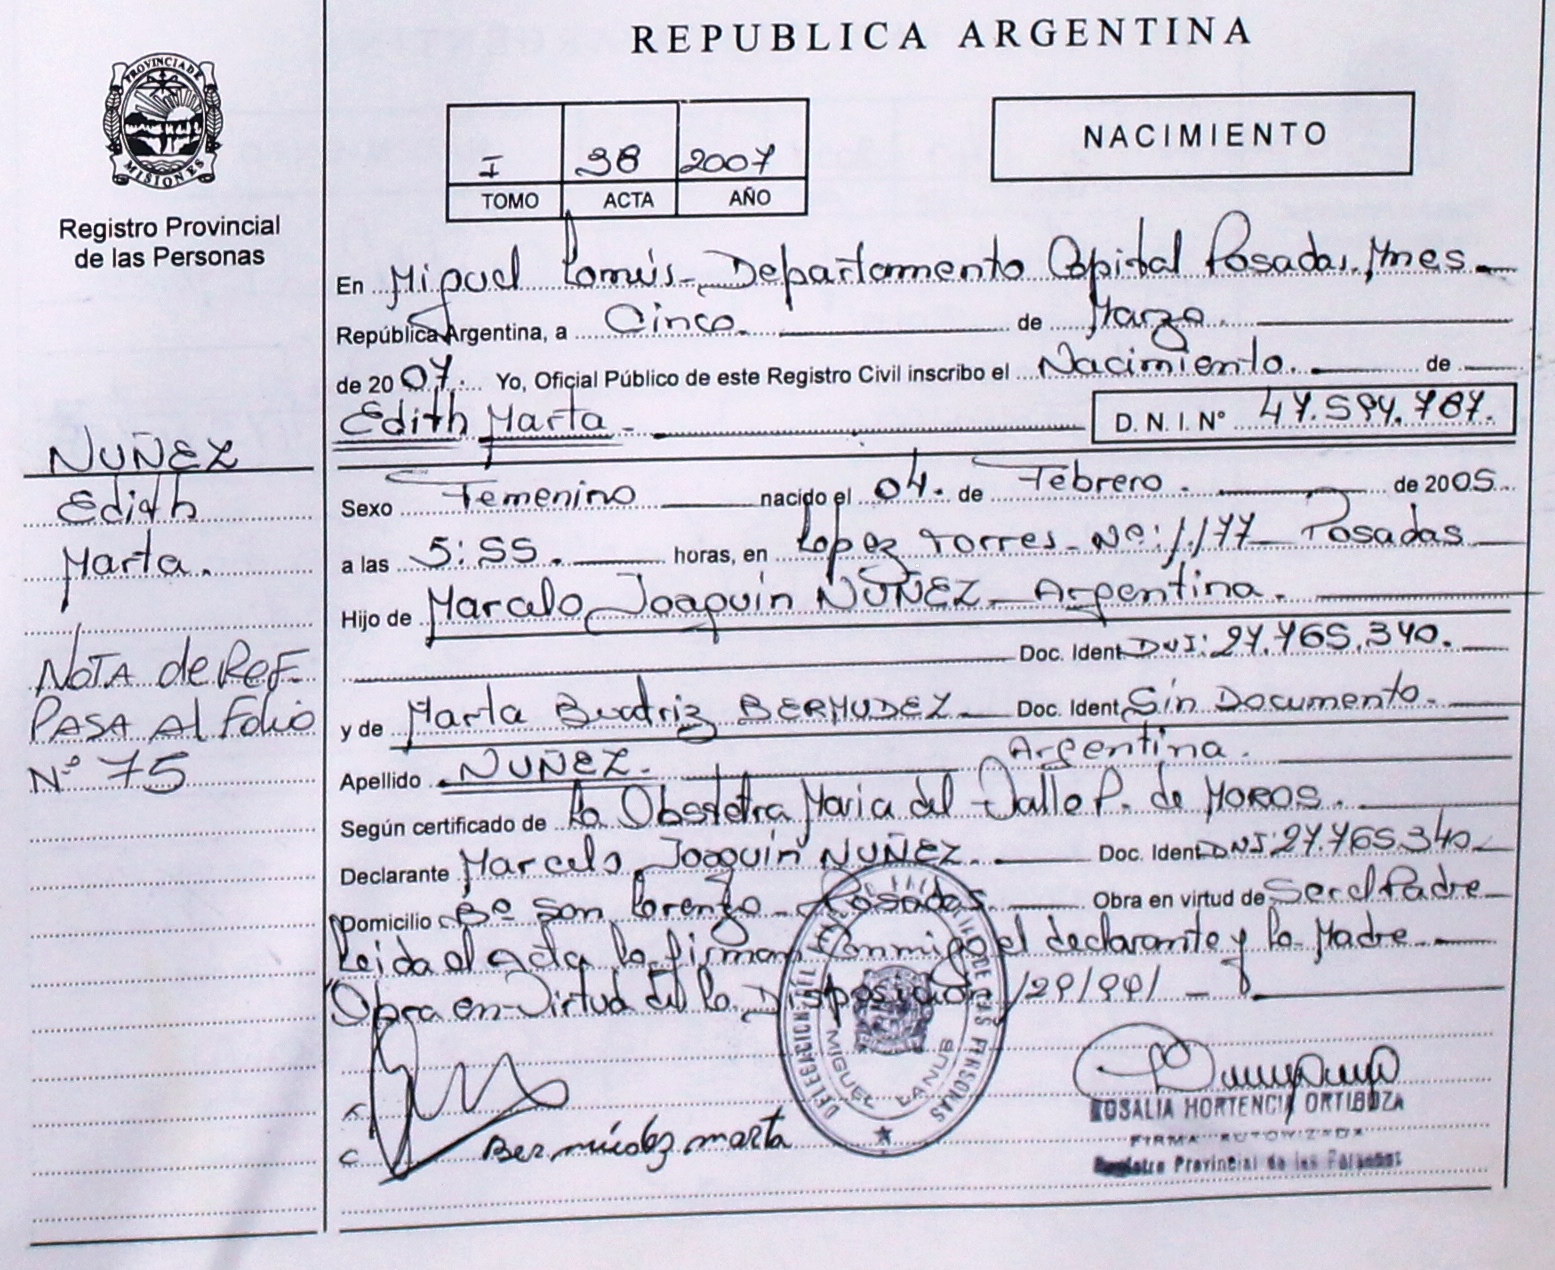 REPUBLICA ARGENTINA
PROVINCIA DE MISIONES
Registro Provincial
de las Personas
I 38 2007
TOMO ACTA AÑO
NACIMIENTO
En Miguel Lanus - Departamento Capital Posadas, Mnes
República Argentina, a Cinco. de Marzo
de 2007. Yo, Oficial Público de este Registro Civil inscribo el Nacimiento. de
Edith Marta - D. N. I. Nº 47.594.787.
Sexo Femenino nacido el 04. de Febrero. de 2005
a las 5:55. horas, en Lopez Torres - Nº: 1.177 - Posadas
Hijo de Marcelo Joaquín NUÑEZ - Argentina.
Doc. Ident. DNI: 27.765.340.
y de Marta Beatriz BERMUDEZ - Doc. Ident. Sin Documento.
Argentina.
Apellido NUÑEZ.
Según certificado de La Obstetra Maria del Valle P. de MOROS.
Declarante Marcelo Joaquín NUÑEZ. Doc. Ident. DNI 27.765.340.
Domicilio Bº San Lorenzo - Posadas Obra en virtud de Ser el Padre
Leida el acta la firman conmigo el declarante y la Madre
Obra en Virtud de la Disposición /29/94/ -
NUÑEZ
Edith
Marta.
NOTA de REF.
PASA Al Folio
Nº 75
DELEGACION DEL REGISTRO PROVINCIAL DE LAS PERSONAS
MIGUEL LANUS
Bermúdez marta
ROSALIA HORTENCIA ORTIGOZA
FIRMA AUTORIZADA
Registro Provincial de las Personas